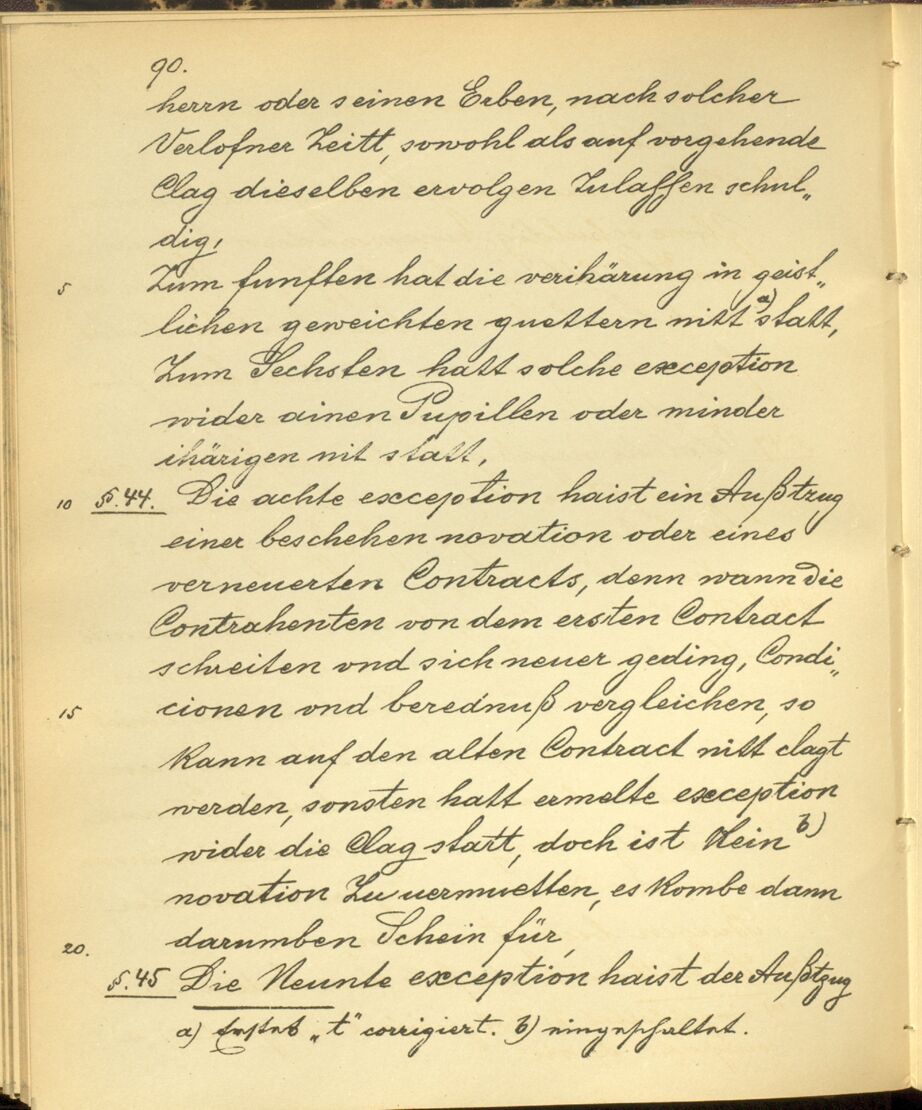 90.
herrn oder seinen Erben, nach solcher
Verlofner Zeitt, sowohl als auf vorgehende
Clag dieselben ervolgen Zulassen schul„
dig,
5 Zum funften hat die verihärung in geist„
lichen geweichten guettern nitt a) statt,
Zum Sechsten hatt solche exception
wider ainen Pupillen oder minder
ihärigen nit statt,
10 §. 44. Die achte exception haist ein Außtzug
einer beschehen novation oder eines
verneuerten Contracts, denn wann die
Contrahenten von dem ersten Contract
schreiten vnd sich neuer geding, Condi„
15 cionen vnd berednuß vergleichen, so
kann auf den alten Contract nitt clagt
werden, sonsten hatt ermelte exception
wider die Clag statt, doch ist Kein b)
novation Zu uermuetten, es kombe dann
20. darumben Schein für,
§. 45 Die Neunte exception haist der Außtzug
a) Erstes „t" corrigiert. b) eingeschaltet.